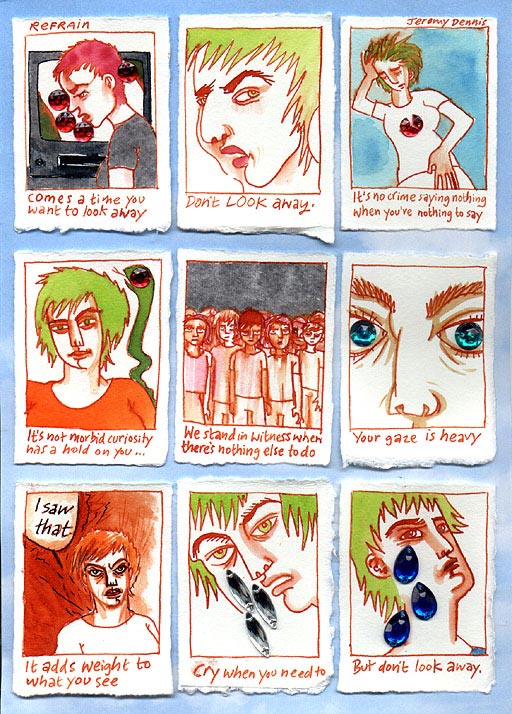 REFRAIN
Jeremy Dennis
comes a time you
want to look away
Don't LOOK away.
It's no crime saying nothing
when you've nothing to say
It's not morbid curiosity
has a hold on you...
We stand in witness when
there's nothing else to do
Your gaze is heavy
I saw
that
It adds weight to
what you see
Cry when you need to
But don't look away.